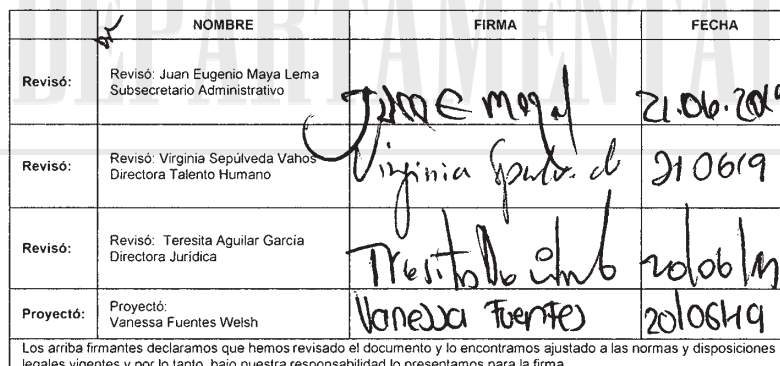 DEPARTAMENTAL
NOMBRE FIRMA FECHA
Revisó: Revisó: Juan Eugenio Maya Lema
Subsecretario Administrativo
Juan E Maya L 21.06.2019
Revisó: Revisó: Virginia Sepúlveda Vahos
Directora Talento Humano
Virginia 210619
Revisó: Revisó: Teresita Aguilar García
Directora Jurídica
20/06/19
Proyectó: Proyectó:
Vanessa Fuentes Welsh
Vanessa Fuentes 20/06/19
Los arriba firmantes declaramos que hemos revisado el documento y lo encontramos ajustado a las normas y disposiciones
legales vigentes y por lo tanto, bajo nuestra responsabilidad lo presentamos para la firma.